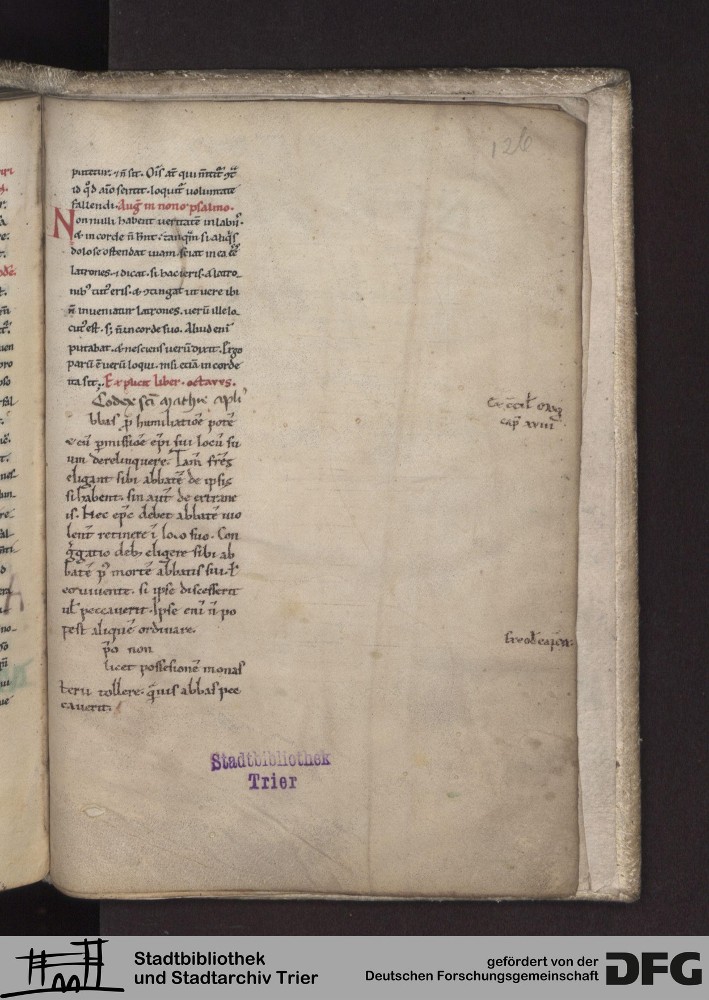 126
putetur. & ñ sit.
id qd̃ aĩo sentit. loquit᷑ uoluntate
fallendi. Aug̃ in nono psalmo.
Non nulli habent ueritatẽ in labiis.
& in corde ñ hñt. tanquã si aliqis
dolose ostendat uiam. sciat in ea eẽ
latrones. & dicat. si hac ieris. a latro-
nib᷒ tut᷒ eris. & ↄtingat ut uere ibi
ñ inueniantur latrones. uerũ ille lo-
cut᷒ est. sꝫ ñ in corde suo. Aliud eni᷑
putabat. & nesciens uerũ dixit. Ergo
parũ ẽ uerũ loqui. nisi etiã in corde
ita sit. Explicit liber. octavus.
Codex scĩ Mathie apli
bbas p̃ humiliatiõe potẽ
& cũ pmissiõe ep̃i sui locũ su
um derelinquere. Tam̃ fr̃es
eligant sibi abbatẽ de ipsis
si habent. sin aut᷑ de extrane
is. Nec ep̃c debet abbatẽ uio
lent̃ retinere i̇ loco suo. Con
g̃gatio debꝫ eligere sibi ab
batẽ p᷒ mortẽ abbatis sui. ł
eo uiuente. si ipse discesserit
uł peccauerit. Ipse eni᷑ ñ po
test aliquẽ ordinare.
non
licet possesionẽ monas
terii tollere. q̃uis abbas pec
cauerit.
cap̃ xviii
Stadtbibliothek
Trier
Stadtbibliothek
und Stadtarchiv Trier
gefördert von der
Deutschen Forschungsgemeinschaft
DFG